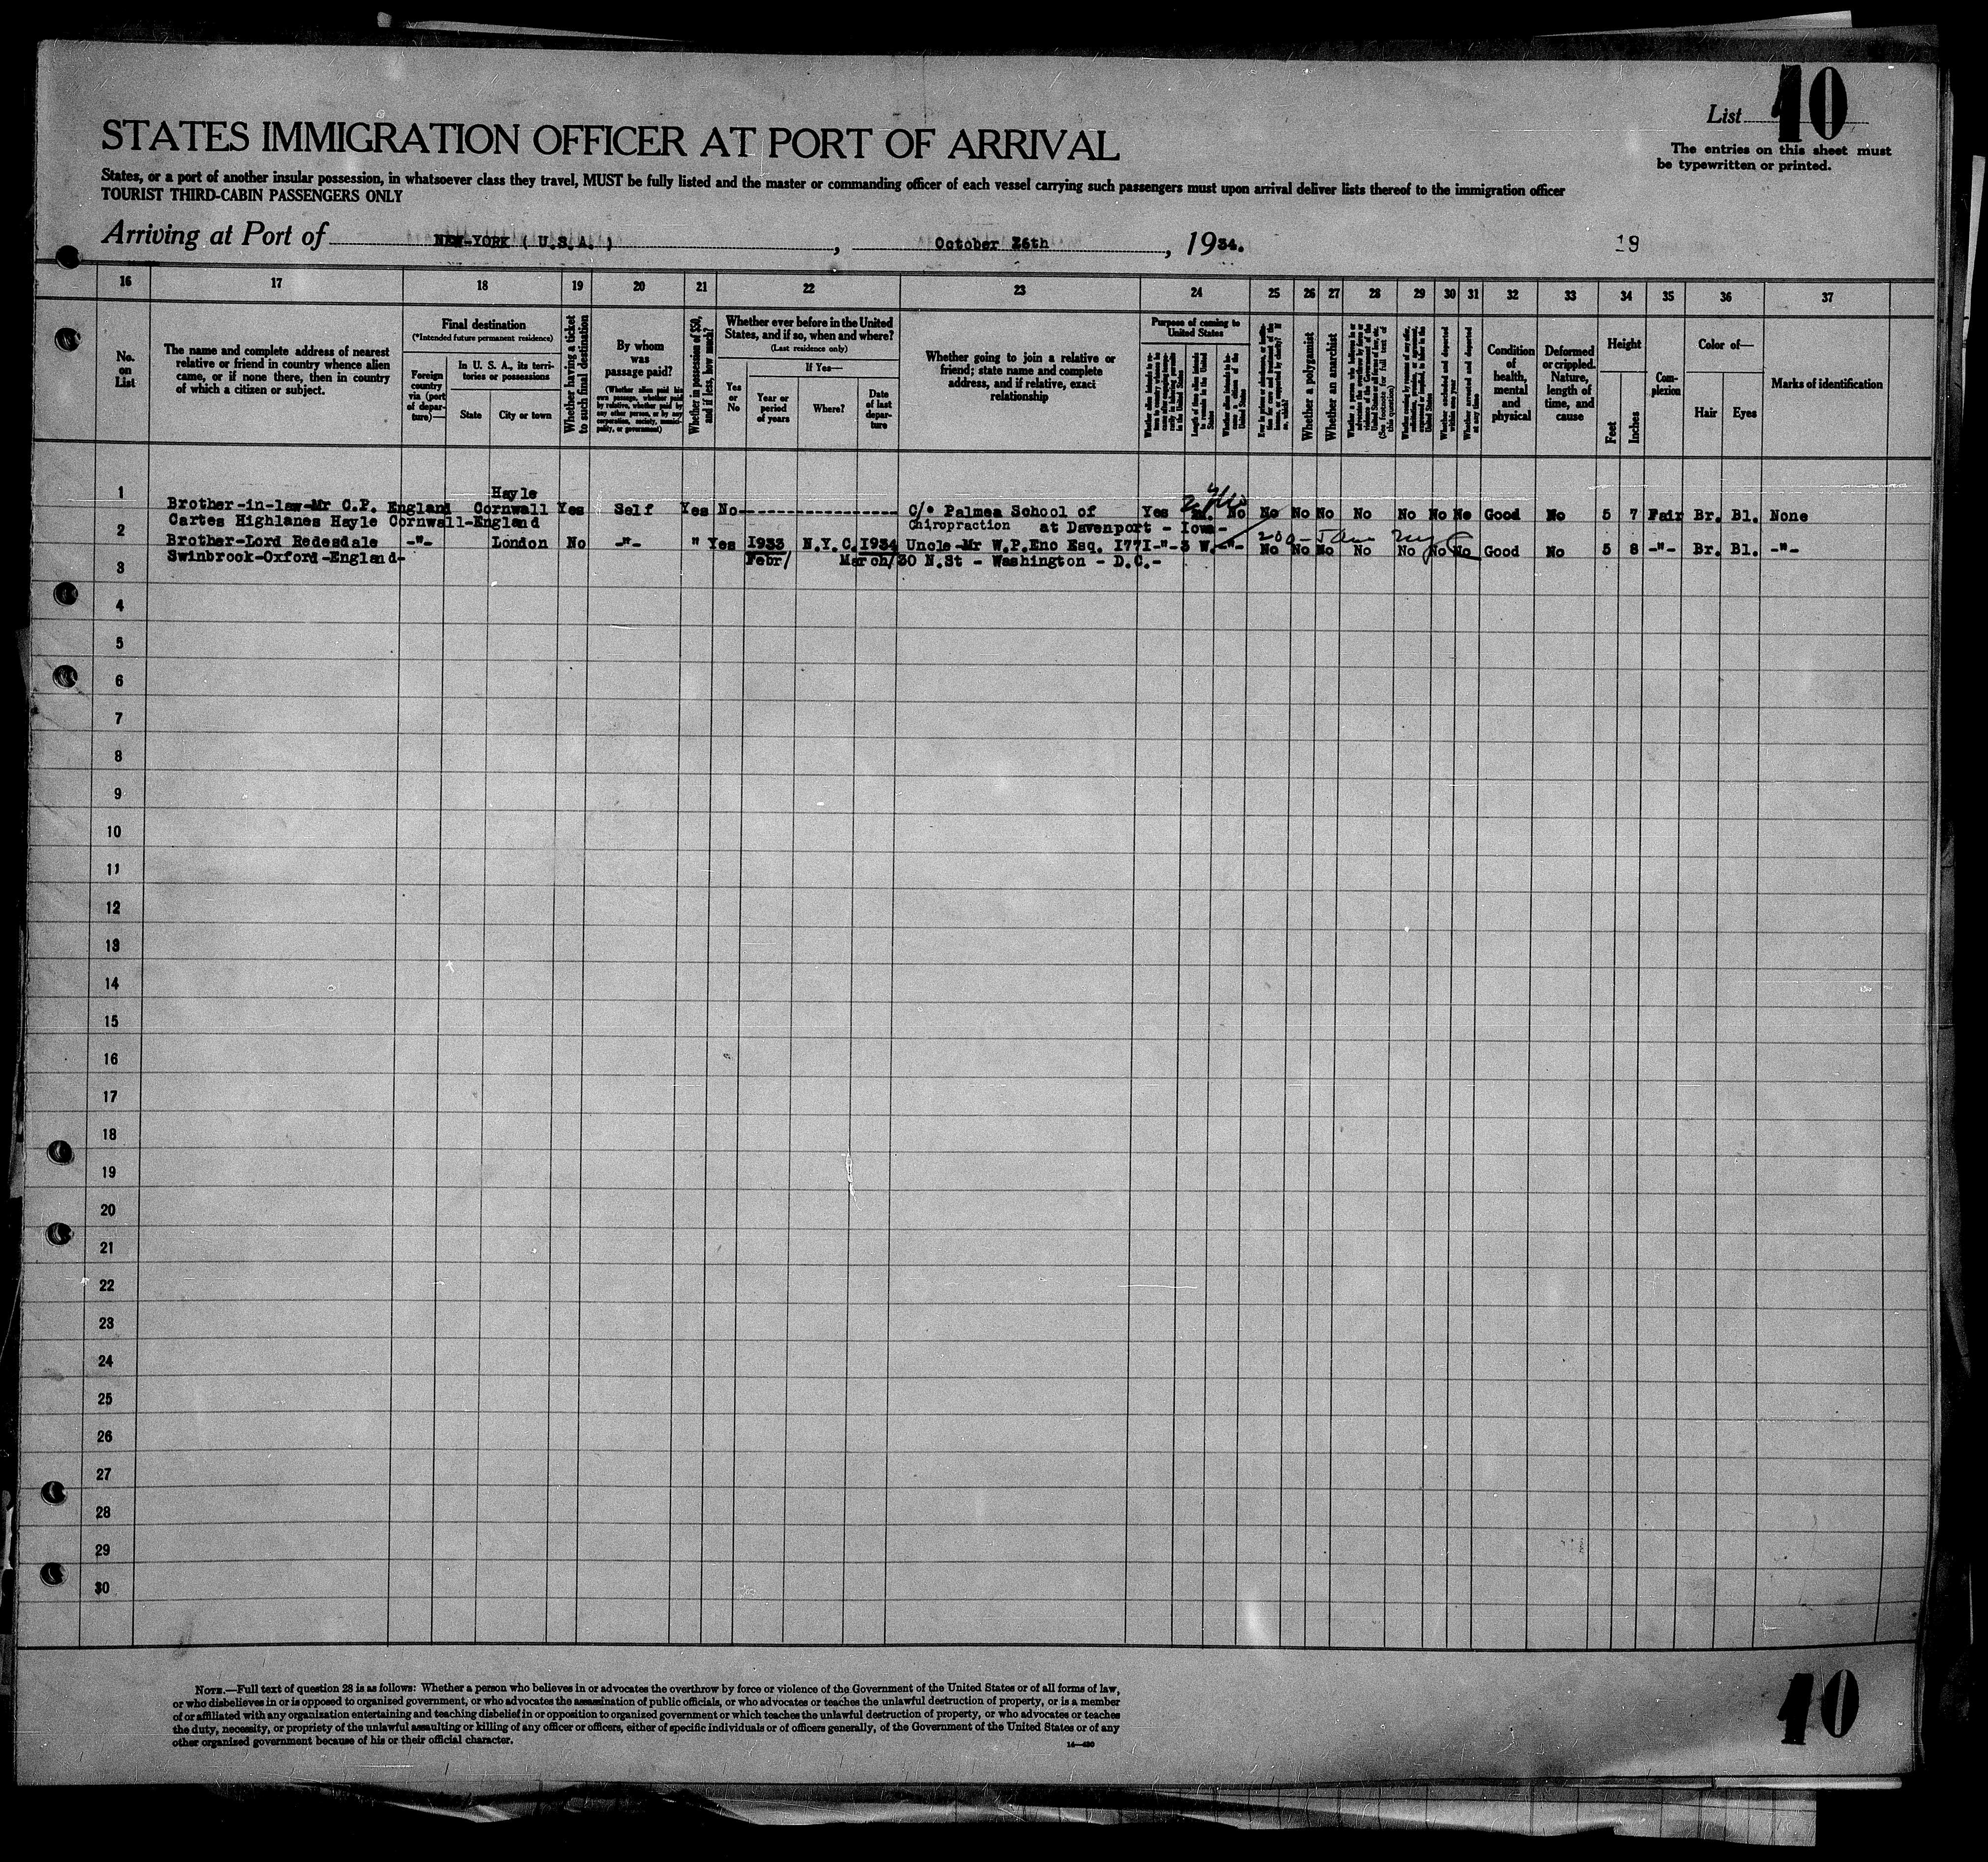 List 10
STATES IMMIGRATION OFFICER AT PORT OF ARRIVAL
The entries on this sheet must
be typewritten or printed.
States, or a port of another insular possession, in whatsoever class they travel, MUST be fully listed and the master or commanding officer of each vessel carrying such passengers must upon arrival deliver lists thereof to the immigration officer
TOURIST THIRD-CABIN PASSENGERS ONLY
Arriving at Port of NEW-YORK ( U.S.A. ) , October 26th , 1934.
19
16 17 18 19 20 21 22 23 24 25 26 27 28 29 30 31 32 33 34 35 36 37
No.
on
List
The name and complete address of nearest
relative or friend in country whence alien
came, or if none there, then in country
of which a citizen or subject.
Final destination
(*Intended future permanent residence)
Foreign
country
via (port
of depar-
ture)—
In U. S. A., its terri-
tories or possessions
State
City or town
Whether having a ticket
to such final destination
By whom
was
passage paid?
(Whether alien paid his
own passage, whether paid
by relative, whether paid by
any other person, or by any
corporation, society, munici-
pality, or government)
Whether in possession of $50,
and if less, how much?
Whether ever before in the United
States, and if so, when and where?
(Last residence only)
Yes
or
No
If Yes—
Year or
period
of years
Where?
Date
of last
depar-
ture
Whether going to join a relative or
friend; state name and complete
address, and if relative, exact
relationship
Purpose of coming to
United States
Whether a polygamist
Whether an anarchist
(See footnote for full text of
this question)
Whether arrested and deported
at any time
Condition
of
health,
mental
and
physical
Deformed
or crippled.
Nature,
length of
time, and
cause
Height
Feet
Inches
Com-
plexion
Color of—
Hair
Eyes
Marks of identification
1 Hayle
Brother-in-law-Mr C.P. England Cornwall Yes Self Yes No-------------------- C/o Palmea School of Yes No No No No No No No No Good No 5 7 Fair Br. Bl. None
Cartes Highlanes Hayle Cornwall-England Chiropraction at Davenport - Iowa-
2
Brother-Lord Redesdale -"- London No -"- " Yes 1933 N.Y.C. 1934 Uncle-Mr W.P.Eno Esq. 1771-"-3 W.-"- No No No No No No No Good No 5 8 -"- Br. Bl. -"-
Swinbrook-Oxford-England- Febr/ March/30 N.St - Washington - D.C.-
3
4
5
6
7
8
9
10
11
12
13
14
15
16
17
18
19
20
21
22
23
24
25
26
27
28
29
30
NOTE.—Full text of question 28 is as follows: Whether a person who believes in or advocates the overthrow by force or violence of the Government of the United States or of all forms of law,
or who disbelieves in or is opposed to organized government, or who advocates the assassination of public officials, or who advocates or teaches the unlawful destruction of property, or is a member
of or affiliated with any organization entertaining and teaching disbelief in or opposition to organized government or which teaches the unlawful destruction of property, or who advocates or teaches
the duty, necessity, or propriety of the unlawful assaulting or killing of any officer or officers, either of specific individuals or of officers generally, of the Government of the United States or of any
other organized government because of his or their official character.
14—430
10